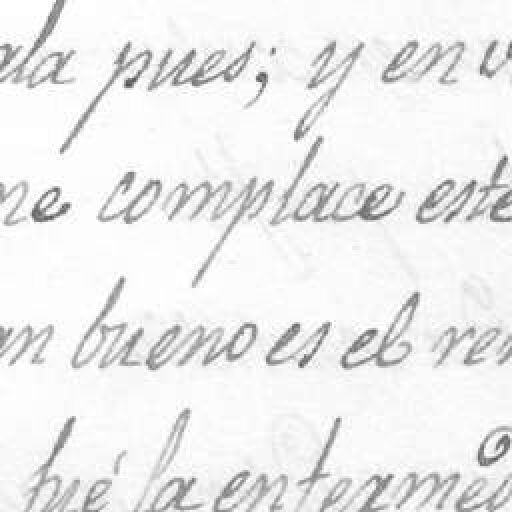 pues; y en
me complace este
bueno es el
fué la enfermed